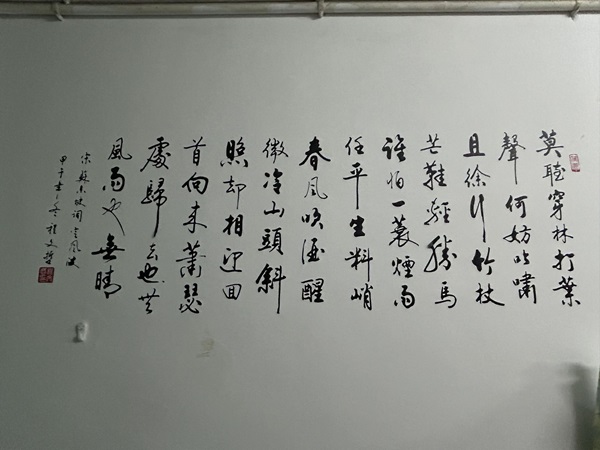 莫聽穿林打葉
聲何妨吟嘯
且徐行竹杖
芒鞋輕勝馬
誰怕一蓑煙雨
任平生料峭
春風吹酒醒
微冷山頭斜
照却相迎回
首向来蕭瑟
處歸去也无
風雨也無晴
宋蘇東坡詞定風波
甲午